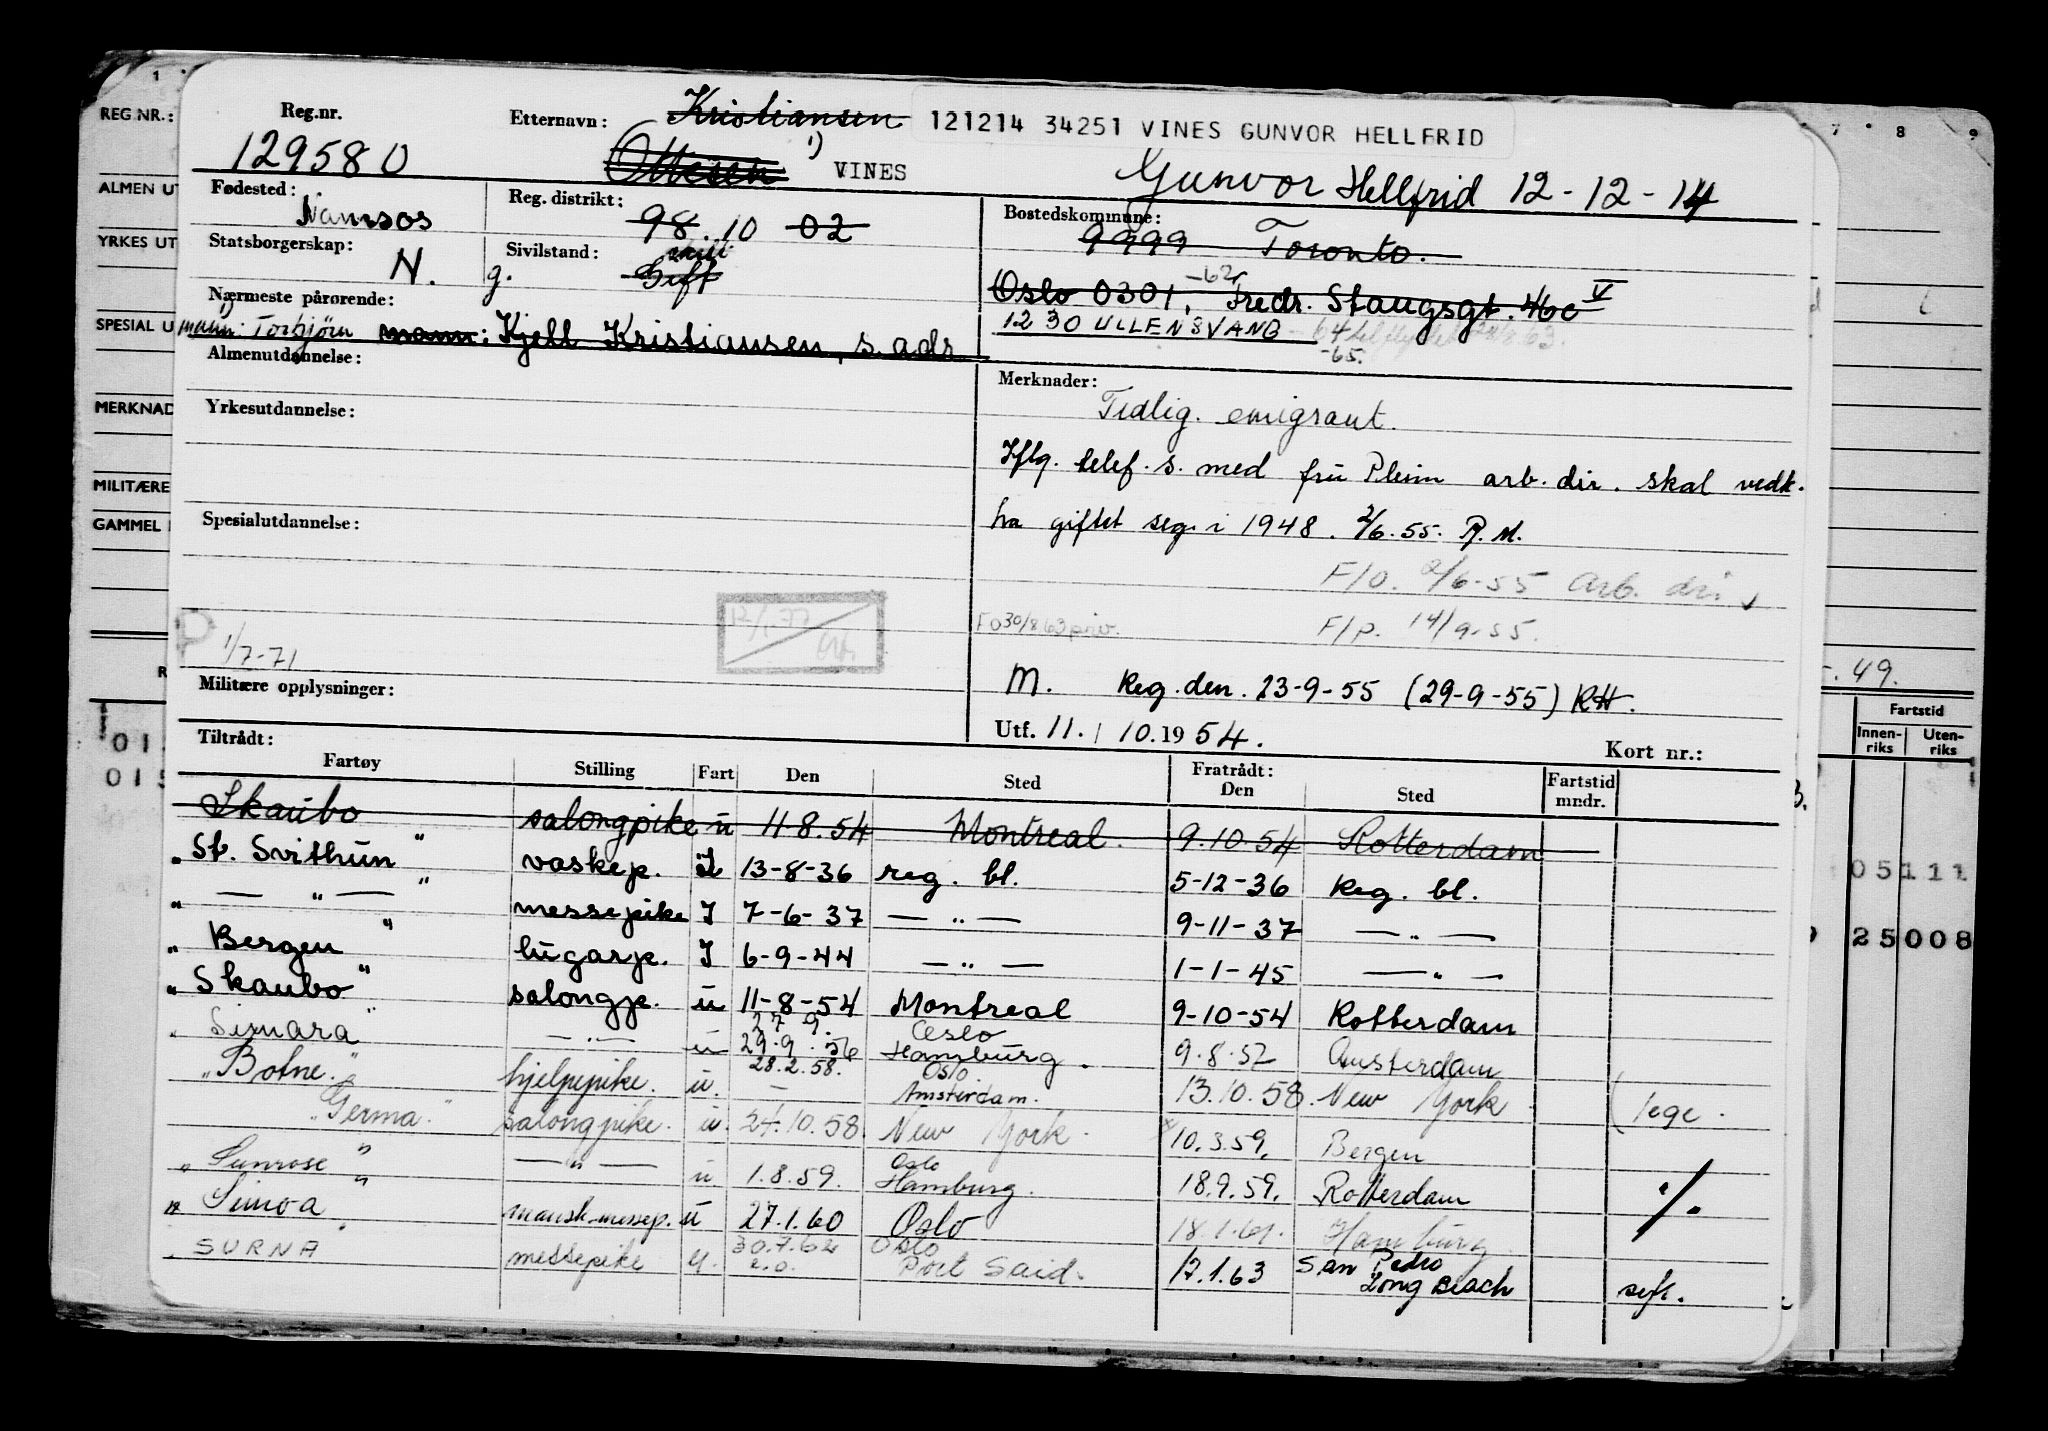 Reg.nr. Etternavn: Kristiansen 121214 34251 VINES GUNVOR HELLFRID
129580 Ottesen 1) VINES Gunvor Hellfrid 12-12-14
Fødested: Namsos Reg. distrikt: 98.10 02 Bostedskommune: 9999 Toronto.
Statsborgerskap: N. Sivilstand: g. skilt Gift
Oslo 0301, -62 Fredr. Stangsgt. 46c V
Nærmeste pårørende:
1) mann: Torbjørn mann: Kjell Kristiansen, s. adr.
1230 ULLENSVANG - 64
-65.
Almenutdannelse:
Merknader:
Tidlig. emigrant.
Yrkesutdannelse:
Iflg. telef. s. med fru Pleim arb. dir. skal vedk.
ha giftet seg i 1948. 2/6.55. R.M.
Spesialutdannelse:
F/O. 2/6-55 arb. dir.
F O 30/8 63 priv. F/p. 14/9-55.
P
1/7-71
M. Reg. den. 23-9-55 (29-9-55) RH.
Militære opplysninger:
Utf. 11. / 10. 1954.
Kort nr.:
Tiltrådt:
Fartøy Stilling Fart Den Sted Fratrådt: Den Sted Fartstid mndr.
Skaubo salongpike u 11.8.54 Montreal. 9.10.54 Rotterdam
"St. Svithun" vaskep. I 13-8-36 reg. bl. 5-12-36 Reg. bl.
" — " — " messepike I 7-6-37 — " — 9-11-37 — " —
"Bergen" lugarp. I 6-9-44 — " — 1-1-45 — " —
"Skaubo" salongp. u 11-8-54 Montreal 9-10-54 Rotterdam
"Simara" — " — u 27 9. 29.9.56 Oslo Hamburg. 9.8.57 Amsterdam
"Botne." hjelpepike. u. 28.2.58. — Oslo Amsterdam. 13.10.58. New York (lege.
"Germa." salongpike. u 24.10.58 New York. x 10.3.59. Bergen
"Sunrose" — " — u 1.8.59. Oslo Hamburg. 18.9.59. Rotterdam ./.
"Simoa" mansk.messep. u 27.1.60 Oslo 18.1.61. Hamburg.
"SURNA messepike u. 30.7.62 e.o. Oslo Port Said. 17.1.63 San Pedro Long Beach syk.
REG.NR.:
ALMEN UT
YRKES UT
SPESIAL U
MERKNAD
MILITÆRE
GAMMEL
1 7 8 9
49.
Fartstid
Innen-riks Uten-riks
05111
25008